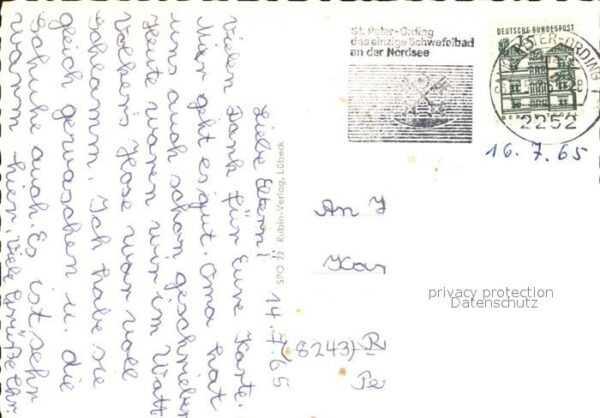 Liebe Eltern! 14.7.65
Vielen Dank für Eure Karte.
Mir geht es gut. Oma hat
uns auch schon geschrieben
Heute waren wir im Watt
Volkers Hose war voll
Schlamm. Ich habe sie
gleich gewaschen u. die
Schuhe auch. Es ist sehr
warm hier. Viele Grüße Ihr
SPO 22 Rublin-Verlag, Lübeck
St. Peter-Ording
das einzige Schwefelbad
an der Nordsee
DEUTSCHE BUNDESPOST
PETER-ORDING
2252
16.7.65
An J
Kar
(8243) R
Pe
privacy protection
Datenschutz